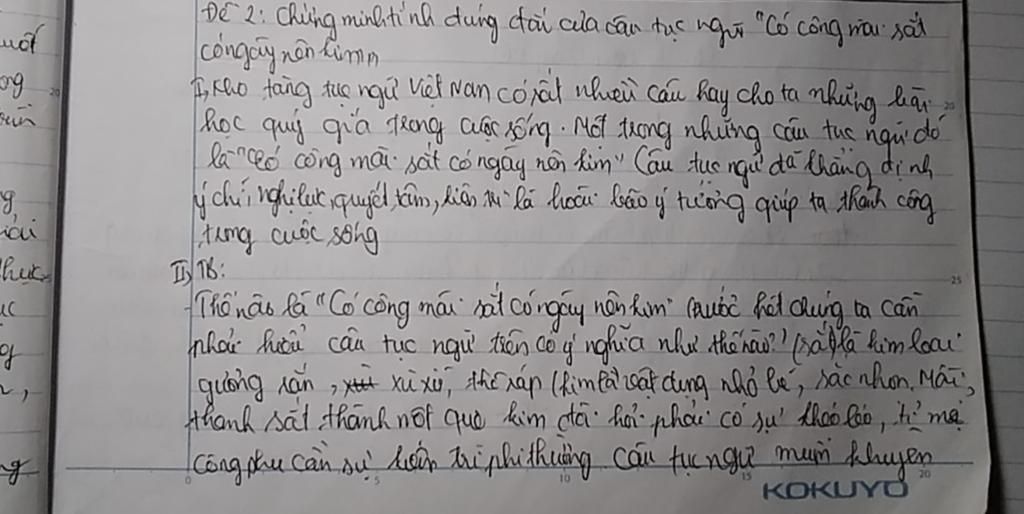 Đề 2: Chứng minh tính đúng đắn của câu tục ngữ "Có công mài sắt
có ngày nên kim"
I, Kho tàng tục ngữ Việt Nam có rất nhiều câu hay cho ta những bài
học quý giá trong cuộc sống. Một trong những câu tục ngữ đó
là "Có công mài sắt có ngày nên kim" Câu tục ngữ đã khẳng định
ý chí, nghị lực, quyết tâm, kiên trì là hoài bão ý tưởng giúp ta thành công
trong cuộc sống
II, TB:
Thế nào là "Có công mài sắt có ngày nên kim" trước hết chúng ta cần
phải hiểu câu tục ngữ trên có ý nghĩa như thế nào? (sắt) là kim loại
cứng rắn, xù xì, thô ráp (kim là vật dụng nhỏ bé, sắc nhọn. Mài
thanh sắt thành một que kim đòi hỏi phải có sự khéo léo, tỉ mẩ
công phu cần sự kiên trì phi thường Câu tục ngữ muốn khuyên
uốt
ong
20
g,
hực
uc
g
0
5
10
15
20
25
KOKUYO